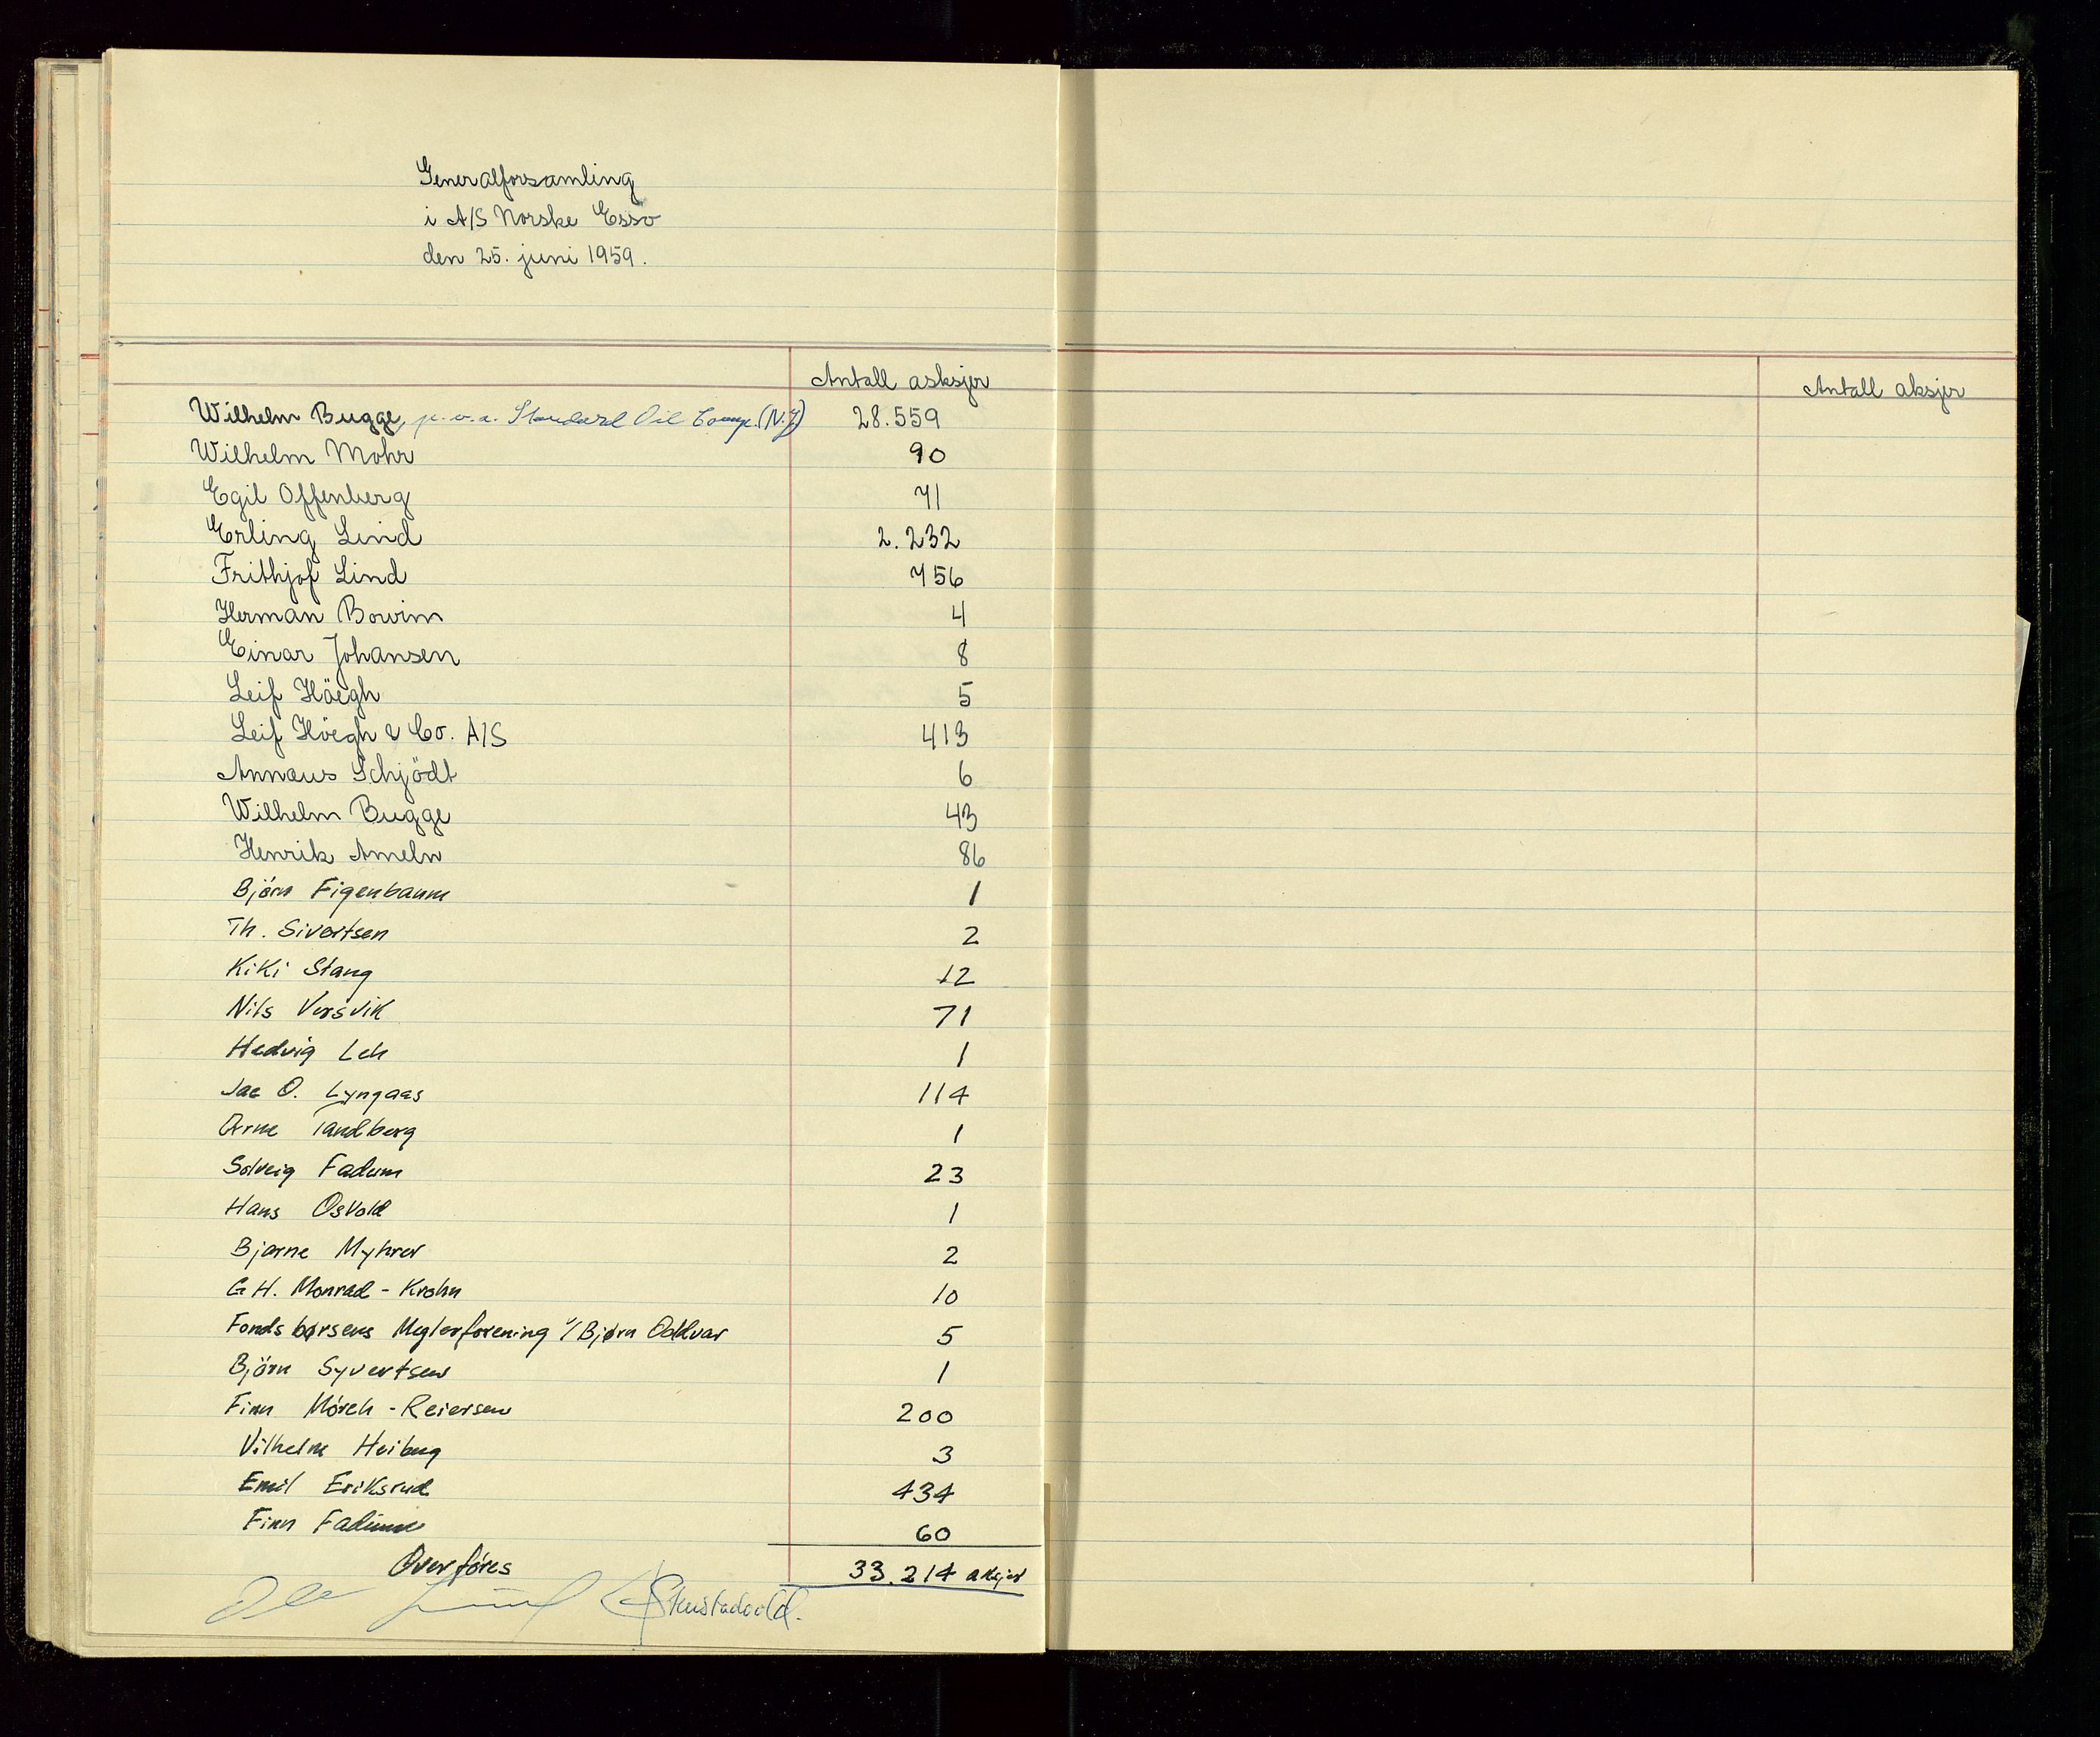 Generalforsamling
i A/S Norske Esso
den 25. juni 1959.
Antall asksjer
Wilhelm Bugge, p.v.a. Standard Oil Comp. (N.J) 28.559
Wilhelm Mohr 90
Egil Offenberg 71
Erling Lind 2.232
Frithjof Lind 756
Herman Bovim 4
Einar Johansen 8
Leif Höegh 5
Leif Höegh & Co. A/S 413
Annæus Schjödt 6
Wilhelm Bugge 43
Henrik Ameln 86
Björn Figenbaum 1
Th. Sivertsen 2
Kiki Stang 12
Nils Versvik 71
Hedvig Leh 1
Jac O. Lyngaas 114
Arne Tandberg 1
Solveig Fadum 23
Hans Osvold 1
Bjarne Myhrer 2
G H. Monrad - Krohn 10
Fondsbørsens Meglerforening v/ Bjørn Oddvar 5
Björn Syvertsen 1
Finn Mørch - Reiersen 200
Vilhelm Heiberg 3
Emil Eriksrud 434
Finn Fadum 60
Overføres 33.214 aksjer
Antall aksjer